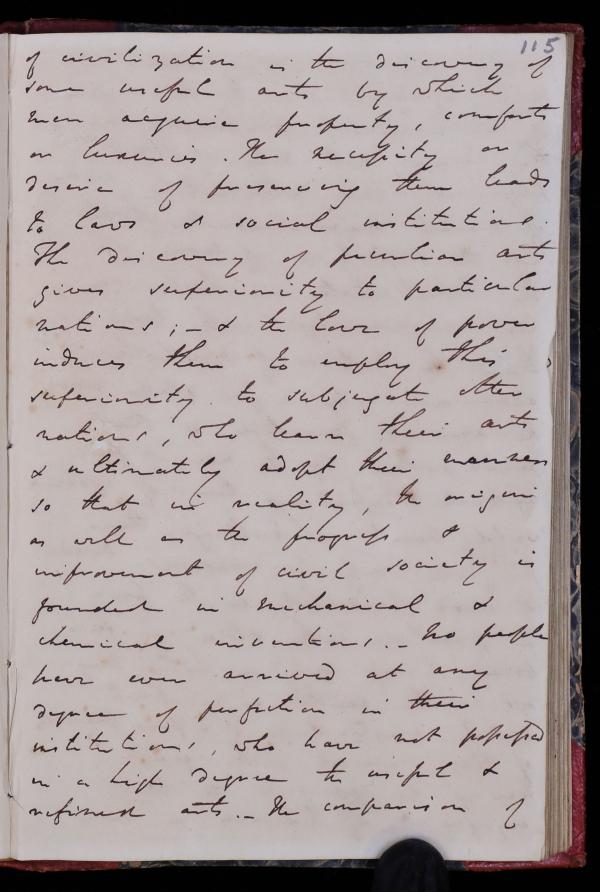 115
of civilization is the discovery of
some useful arts by which
men acquire property, comforts
or luxuries. The necessity or
desire of preserving them leads
to laws & social institutions.
The discovery of peculiar arts
gives superiority to particular
nations; – & the love of power
induces them to employ this
superiority to subjugate other
nations, who learn their arts
& ultimately adopt their manners
so that in reality, the origin
as well as the progress &
improvement of civil society is
founded in mechanical &
chemical inventions. – No people
have ever arrived at any
degree of perfection in their
institutions, who have not possessed
in a high degree the useful &
refined arts. – The comparison of